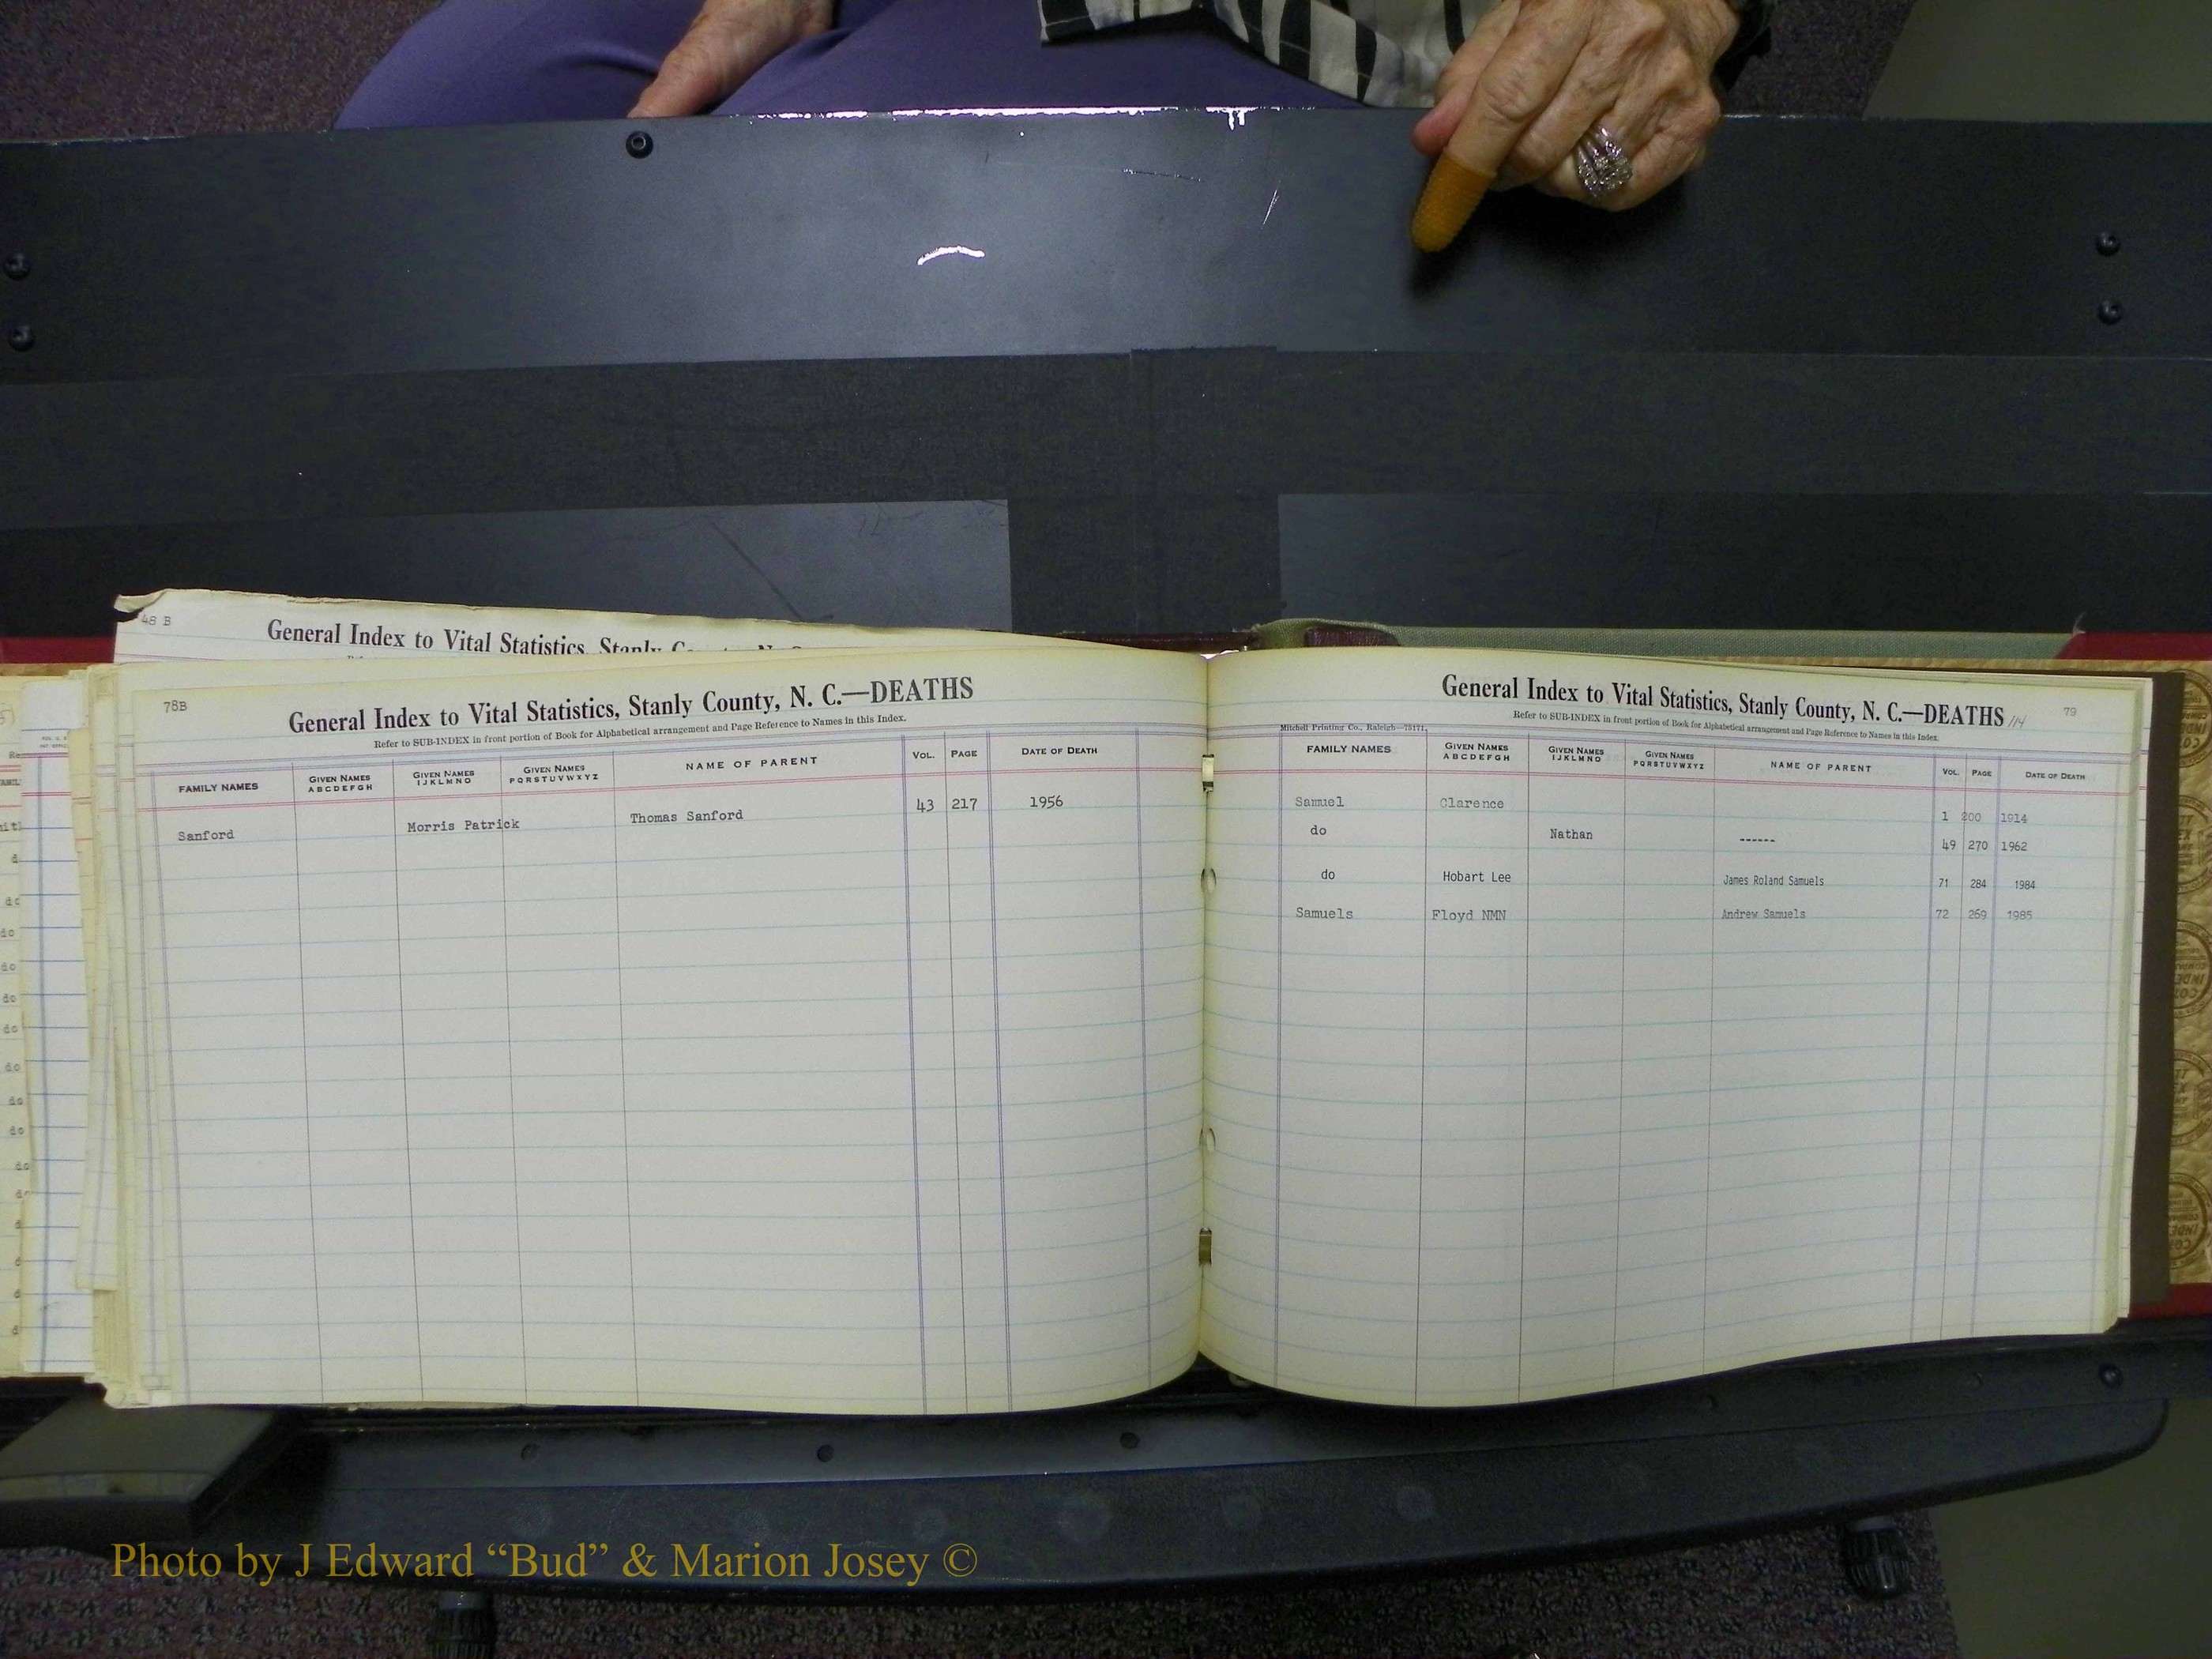 48 B
General Index to Vital Statistics, Stanly
78B
General Index to Vital Statistics, Stanly County, N. C.—DEATHS
Refer to SUB-INDEX in front portion of Book for Alphabetical arrangement and Page Reference to Names in this Index.
FAMILY NAMES GIVEN NAMES ABCDEFGH GIVEN NAMES IJKLMNO GIVEN NAMES PQRSTUVWXYZ NAME OF PARENT VOL. PAGE DATE OF DEATH
Sanford Morris Patrick Thomas Sanford 43 217 1956
General Index to Vital Statistics, Stanly County, N. C.—DEATHS 114 79
Refer to SUB-INDEX in front portion of Book for Alphabetical arrangement and Page Reference to Names in this Index.
Mitchell Printing Co., Raleigh—75171.
FAMILY NAMES GIVEN NAMES ABCDEFGH GIVEN NAMES IJKLMNO GIVEN NAMES PQRSTUVWXYZ NAME OF PARENT VOL. PAGE DATE OF DEATH
Samuel Clarence 1 200 1914
do Nathan ------ 49 270 1962
do Hobart Lee James Roland Samuels 71 284 1984
Samuels Floyd NMN Andrew Samuels 72 269 1985
do
do
do
do
do
do
do
do
do
Photo by J Edward “Bud” & Marion Josey ©